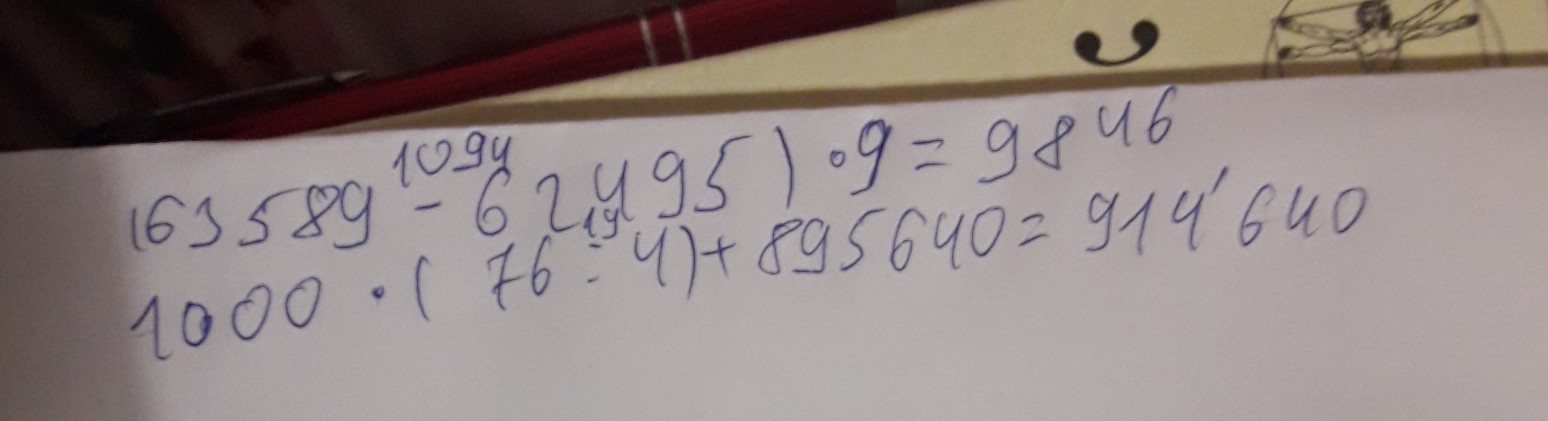 1094
(63589 - 62495) · 9 = 9846
19
1000 · (76 : 4) + 895640 = 914'640